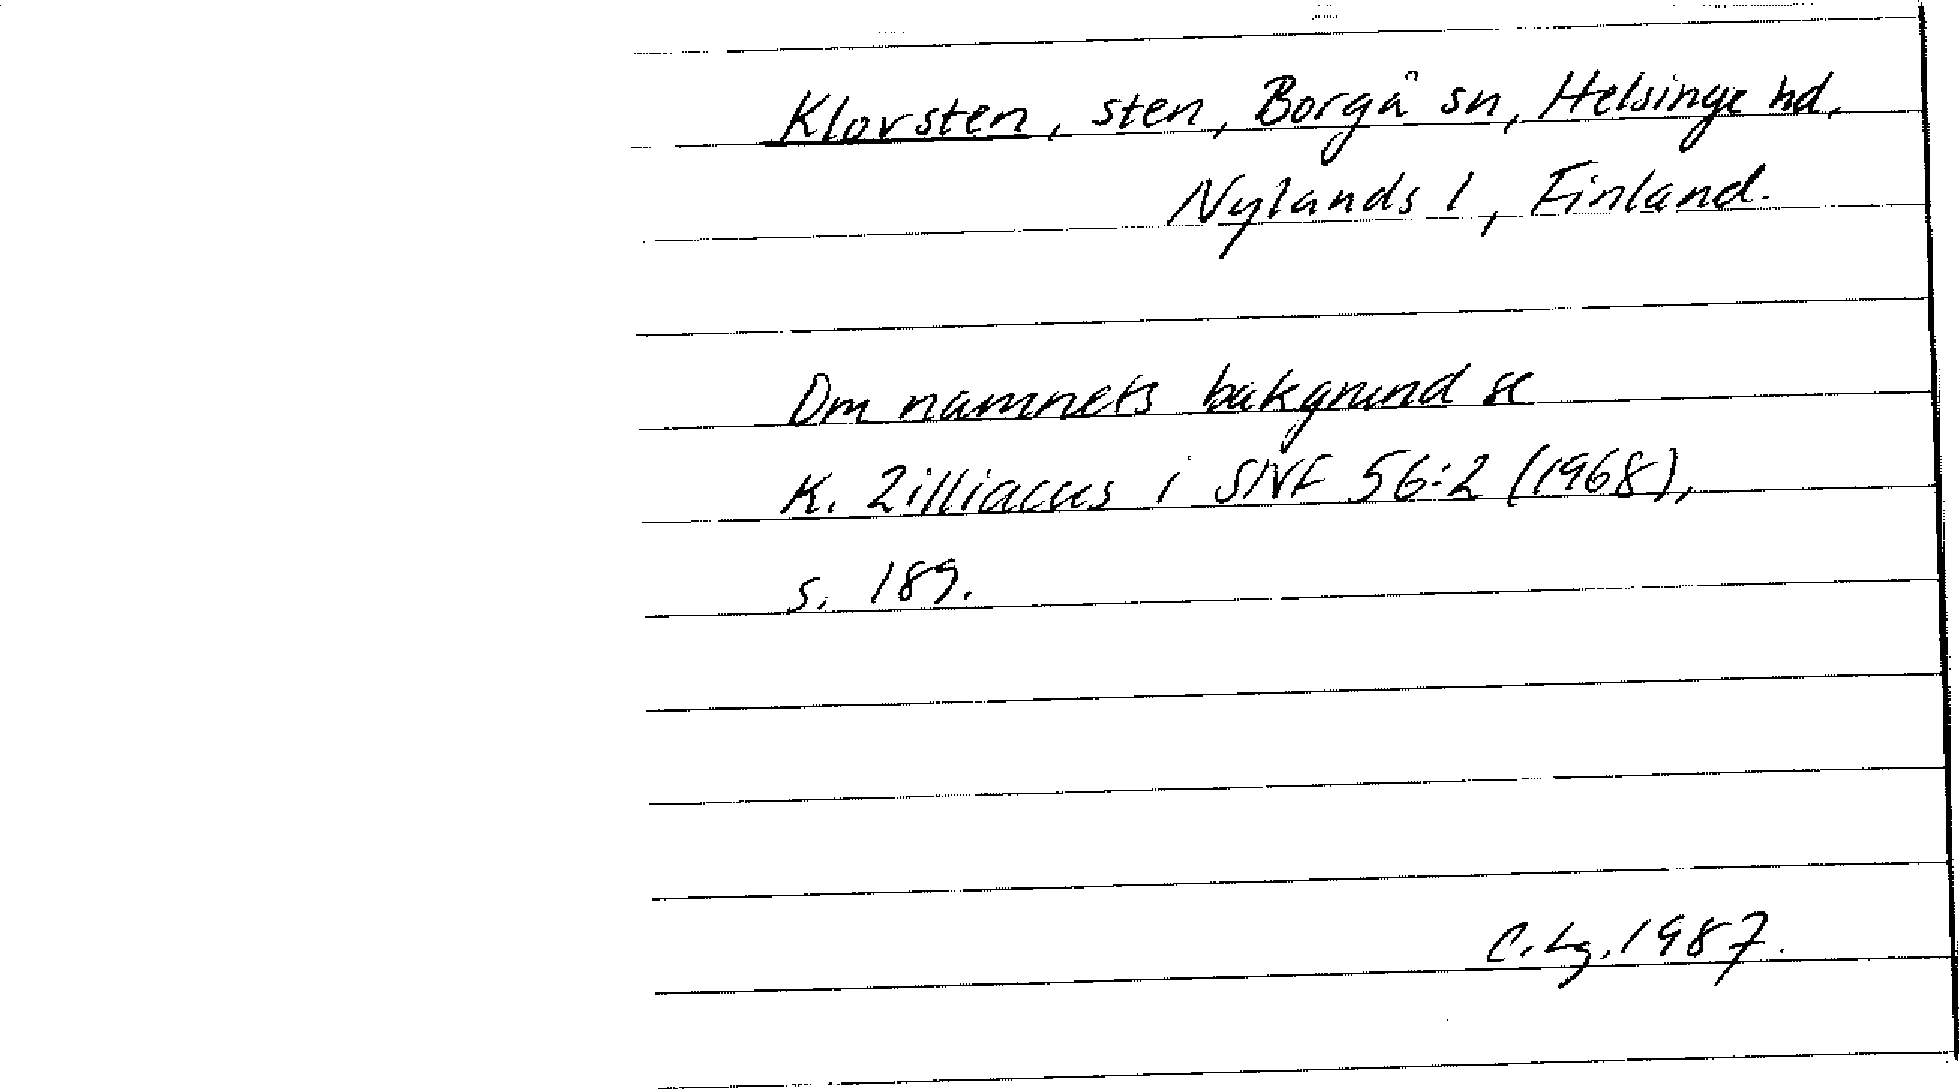 Klovsten, sten, Borgå sn, Helsinge hd,
Nylands l, Finland.
Om namnets bakgrund se
K. Zilliacus i SNF 56:2 (1968),
s. 189.
C. Lg. 1987.